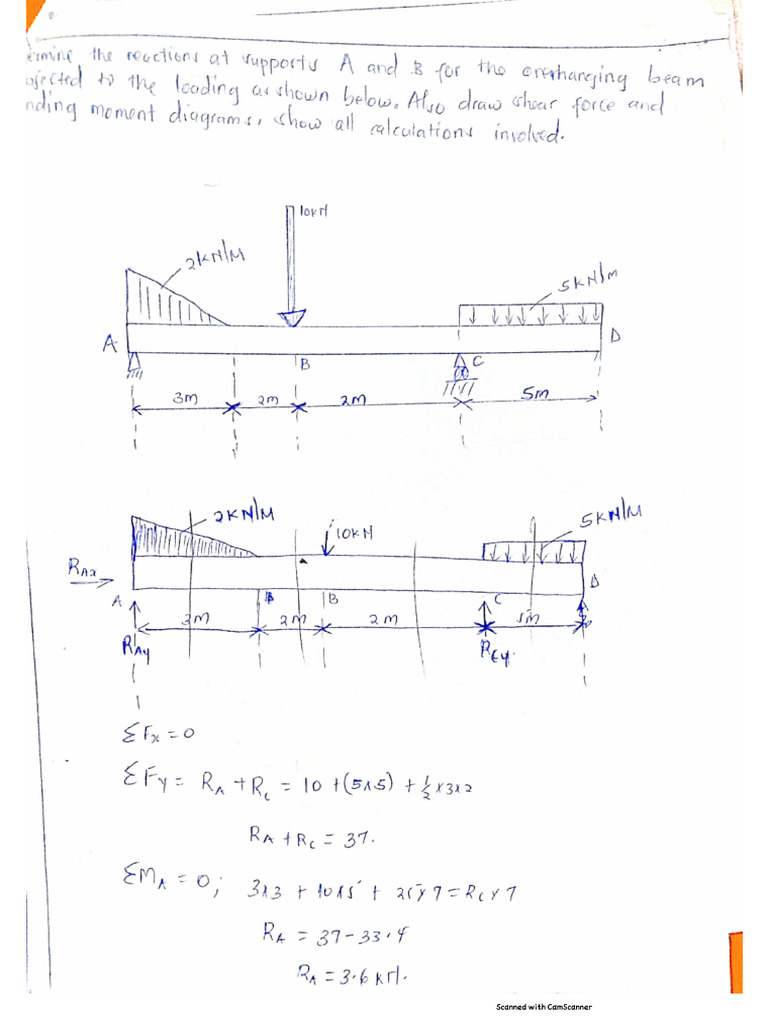 ermine the reactions at supports A and B for the overhanging beam
bjected to the loading as shown below. Also draw shear force and
nding moment diagrams, show all calculations involved.
10kN
2KN/M
5KN/M
A
D
B
C
3m
2m
2m
5m
2KN/M
10KN
5KN/M
RAx
A
B
C
D
3m
2m
2m
5m
RAy
RCy.
ΣFx = 0
ΣFy = RA + RC = 10 + (5x5) + 1/2 x3x2
RA + RC = 37.
ΣMA = 0; 3x3 + 10x5 + 25x7 = RC x 7
RA = 37 - 33.4
RA = 3.6 kN.
Scanned with CamScanner